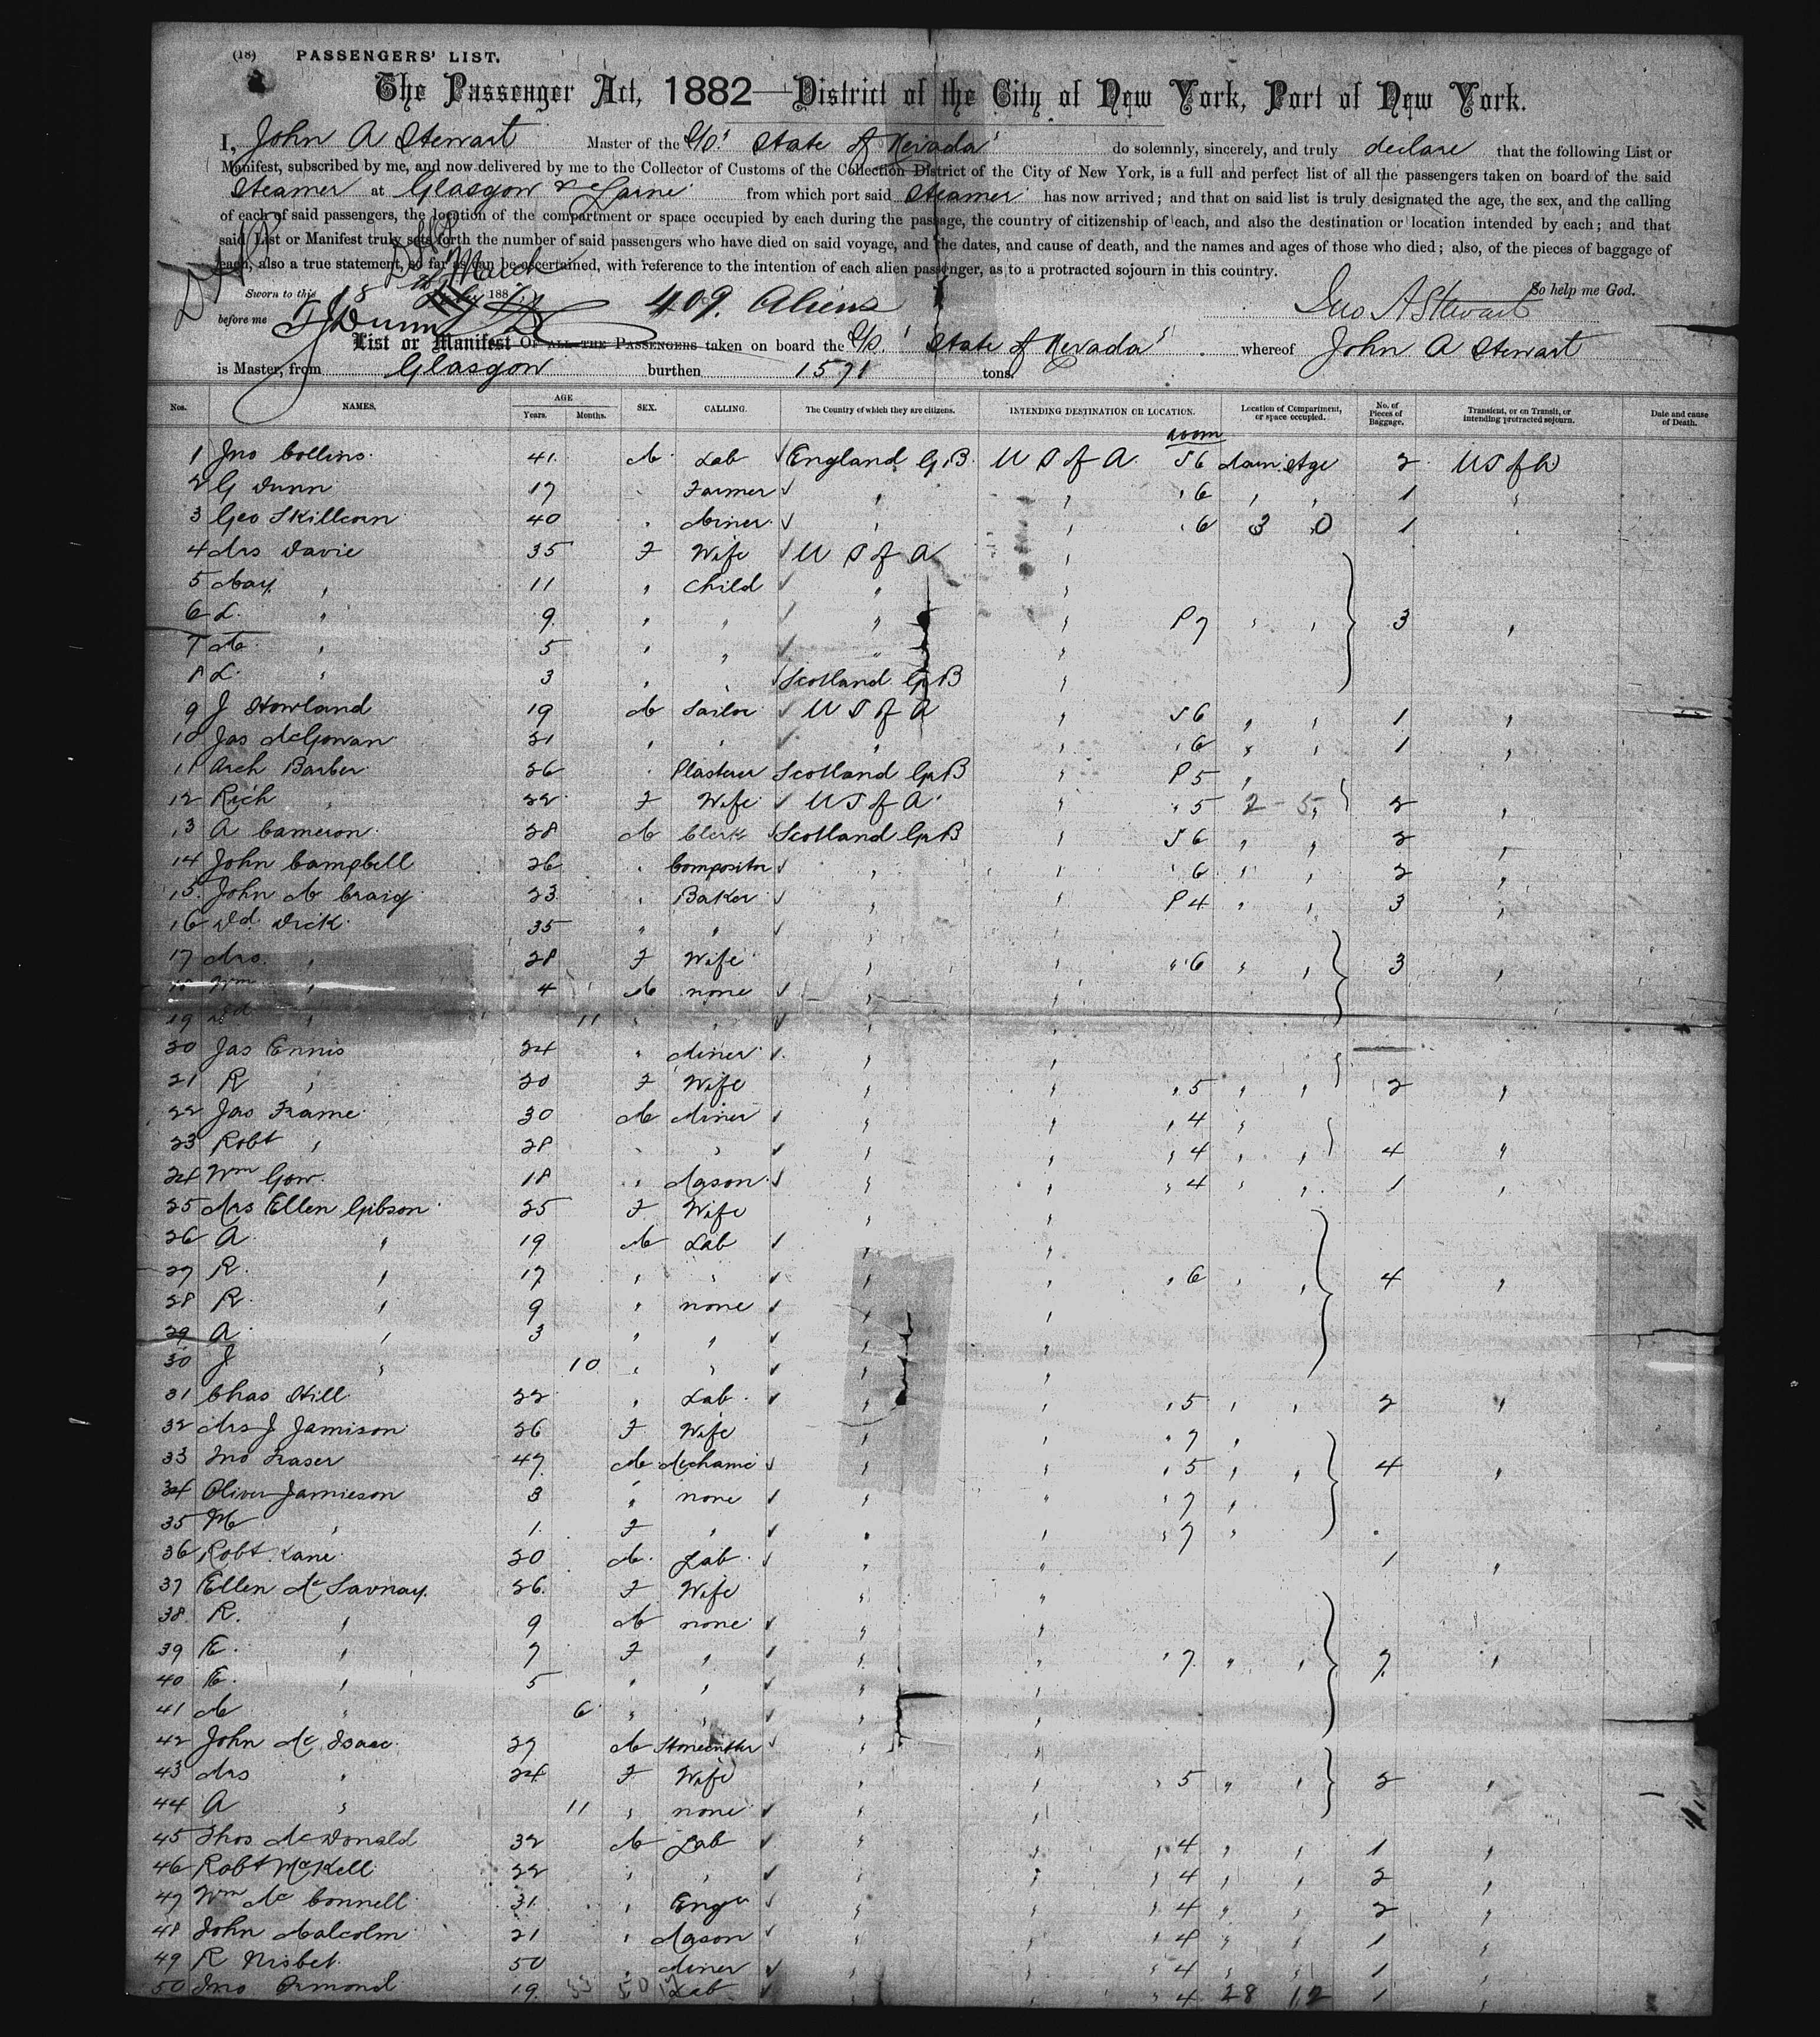 (18) PASSENGERS' LIST.
The Passenger Act, 1882—District of the City of New York, Port of New York.
I, John A Stewart Master of the S/S. "State of Nevada" do solemnly, sincerely, and truly declare that the following List or
Manifest, subscribed by me, and now delivered by me to the Collector of Customs of the Collection District of the City of New York, is a full and perfect list of all the passengers taken on board of the said
Steamer at Glasgow & Larne from which port said Steamer has now arrived; and that on said list is truly designated the age, the sex, and the calling
of each of said passengers, the location of the compartment or space occupied by each during the passage, the country of citizenship of each, and also the destination or location intended by each; and that
said List or Manifest truly sets forth the number of said passengers who have died on said voyage, and the dates, and cause of death, and the names and ages of those who died; also, of the pieces of baggage of
each, also a true statement, so far as can be ascertained, with reference to the intention of each alien passenger, as to a protracted sojourn in this country.
Sworn to this 18 March 188 409. Aliens So help me God.
before me T J Dunn Jno A Stewart
List or Manifest OF ALL THE PASSENGERS taken on board the S/S. "State of Nevada" whereof John A Stewart
is Master, from Glasgow burthen 1571 tons.
Nos. NAMES. AGE Years. Months. SEX. CALLING. The Country of which they are citizens. INTENDING DESTINATION OR LOCATION. Location of Compartment, or space occupied. No. of Pieces of Baggage. Transient, or on Transit, or intending protracted sojourn. Date and cause of Death.
room
1 Jno Collins 41 M Lab England G.B. U S of A 56 Main Stge 2 US of A
2 G Dunn 17 " Farmer " " " 6 " " 1 "
3 Geo Skillcorn 40 " Miner " " " 6 3 0 1 "
4 Mrs Davie 35 F Wife U S of A "
5 May " 11 " Child " "
6 L. " 9 " " " " P 7 " " 3 "
7 M. " 5 " " " "
8 L. " 3 " " Scotland G B "
9 J Howland 19 M Sailor U S of A " 56 " " 1 "
10 Jas McGowan 21 " " " " " 6 " " 1 "
11 Arch Barber 26 " Plasterer Scotland G B " P 5 "
12 Rich " 22 F Wife U S of A " " 5 2 5 2 "
13 A Cameron 28 M Clerk Scotland G B " 56 " " 2 "
14 John Campbell 26 " Compositor " " " 6 " " 2 "
15 John M Craig 23 " Baker " " P 4 " " 3 "
16 Dd. Dick 35 " " " "
17 Mrs. " 28 F Wife " " " 6 " " 3 "
18 Wm " 4 M none " "
19 Dd " 11 " " " "
20 Jas Ennis 24 " Miner " "
21 R " 20 F Wife " " " 5 " " 2 "
22 Jas Frame 30 M Miner " " " 4 "
23 Robt " 28 " " " " " 4 " " 4 "
24 Wm Gow 18 " Mason " " " 4 " " 1 "
25 Mrs Ellen Gibson 25 F Wife " "
26 A " 19 M Lab " "
27 R. " 17 " " " " " 6 " " 4 "
28 R. " 9 " none " "
29 A " 3 " " " "
30 J " 10 " " " "
31 Chas Hill 22 " Lab " " " 5 " " 2 "
32 Mrs J Jamison 26 F Wife " " " 7 "
33 Jno Fraser 47 M Mechanic " " " 5 " " 4 "
34 Oliver Jamieson 3 " none " " " 7 "
35 M " 1 F " " " " 7 "
36 Robt Kane 20 M Lab " " 1 "
37 Ellen Mc 26 F Wife " "
38 R. " 9 M none " "
39 E. " 7 F " " " " 7 " " 7 "
40 E. " 5 " " " "
41 M " 6 " " " "
42 John Mc Isaac 27 M Stonecutter " "
43 Mrs " 24 F Wife " " " 5 " " 2 "
44 A " 11 " none " "
45 Thos McDonald 32 M Lab " " " 4 " " 1 "
46 Robt McKell 22 " " " " " 4 " " 2 "
47 Wm Mc Connell 31 " Engr " " " 4 " " 2 "
48 John Malcolm 21 " Mason " " " 4 " " 1 "
49 R Nisbet 50 " Miner " " " 4 " " 1 "
50 Jno Ormond 19 " Lab " " " 4 28 12 1 "